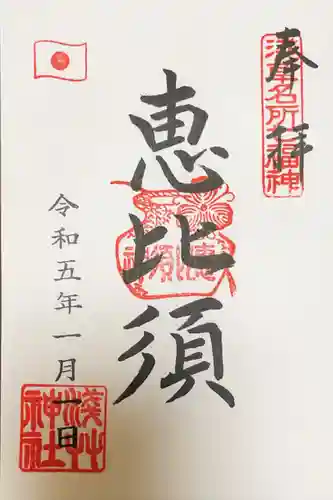 奉拝
浅草名所七福神
恵比須
恵比須神
令和五年一月一日
浅草神社